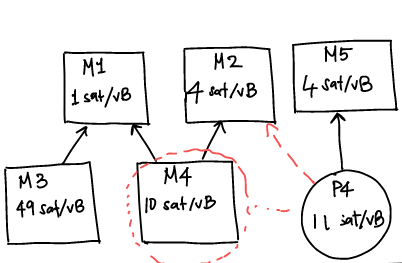 M1
1 sat/vB
M2
4 sat/vB
M5
4 sat/vB
M3
49 sat/vB
M4
10 sat/vB
P4
11 sat/vB